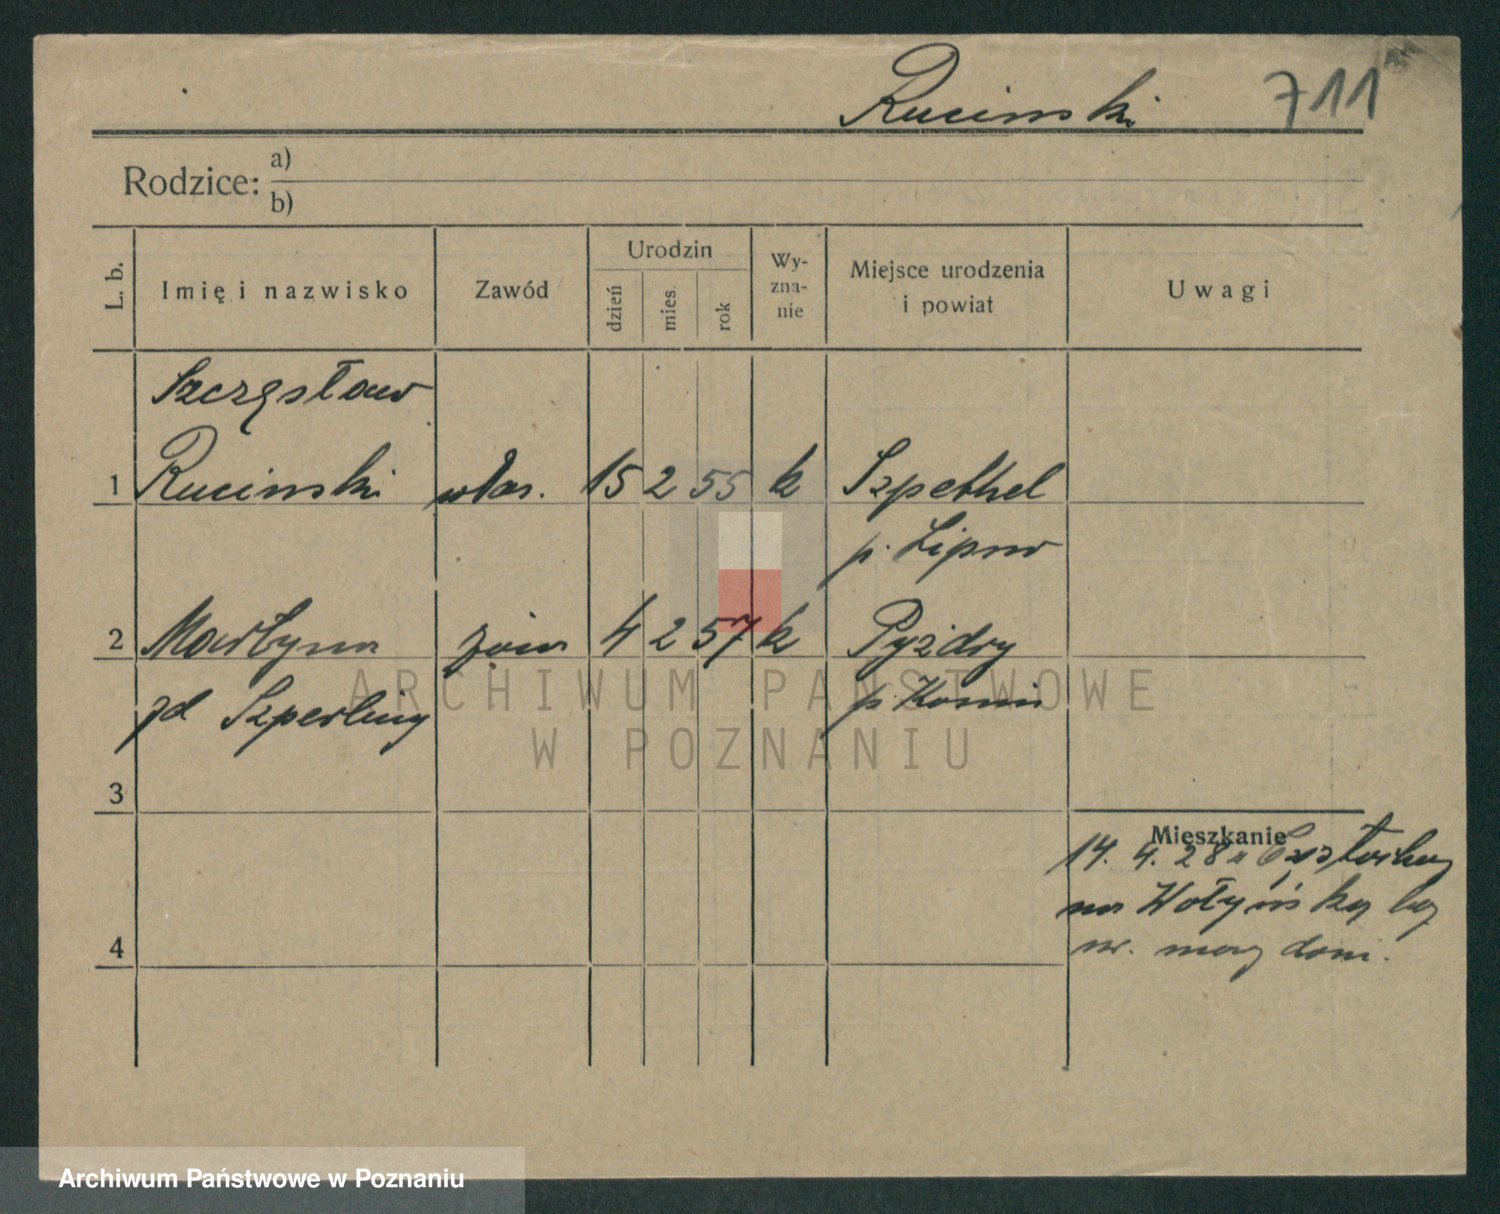 Rucinski 711
Rodzice: a)
b)
L. b. Imię i nazwisko Zawód Urodzin dzień mies. rok Wyzna-nie Miejsce urodzenia i powiat Uwagi
Szczęsław
1 Rucinski właś. 15 2 55 k Szpethel
p. Lipno
2 Martyna żona 4 2 57 k Pyzdry
zd Szperling p. Konin
3
Mieszkanie
14. 4. 28
na Wołyńską
4 nr. dom.
ARCHIWUM PAŃSTWOWE
W POZNANIU
Archiwum Państwowe w Poznaniu